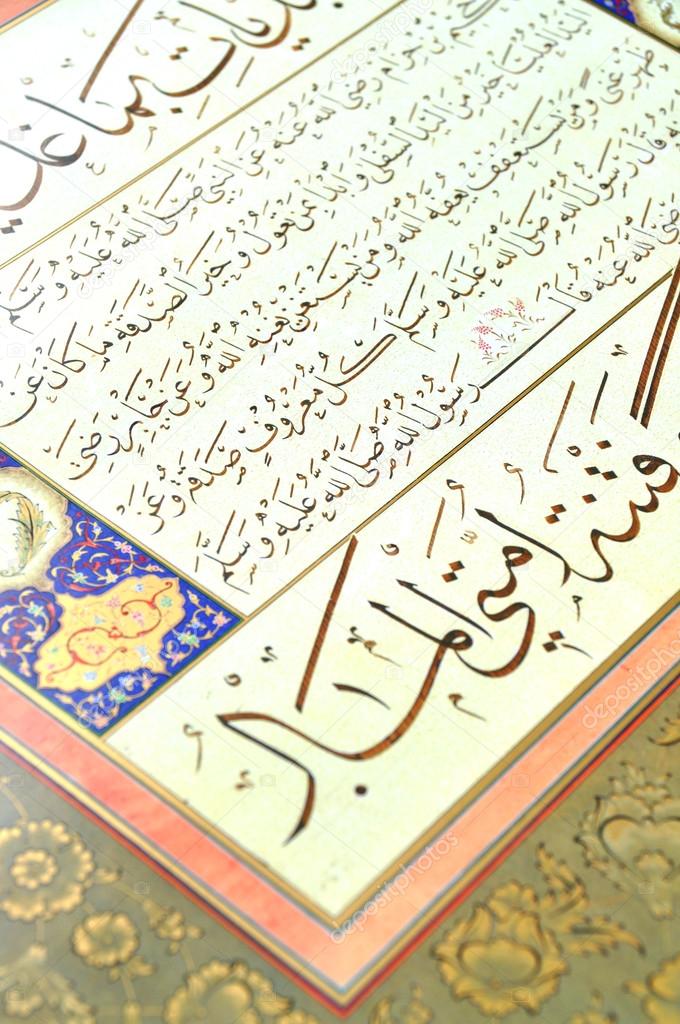 حكيم بن حزام رضي الله عنه عن النبي صلى الله عليه وسلم
اليد العليا خير من اليد السفلى وابدأ بمن تعول وخير الصدقة ما كان عن
ظهر غنى ومن يستعفف يعفه الله ومن يستغن يغنه الله وعن جابر رضي
قال رسول الله صلى الله عليه وسلم كل معروف صدقة وعن
رضي الله عنه قال
رسول الله صلى الله عليه وسلم
فتنة أمتي المال
depositphotos
depositphotos